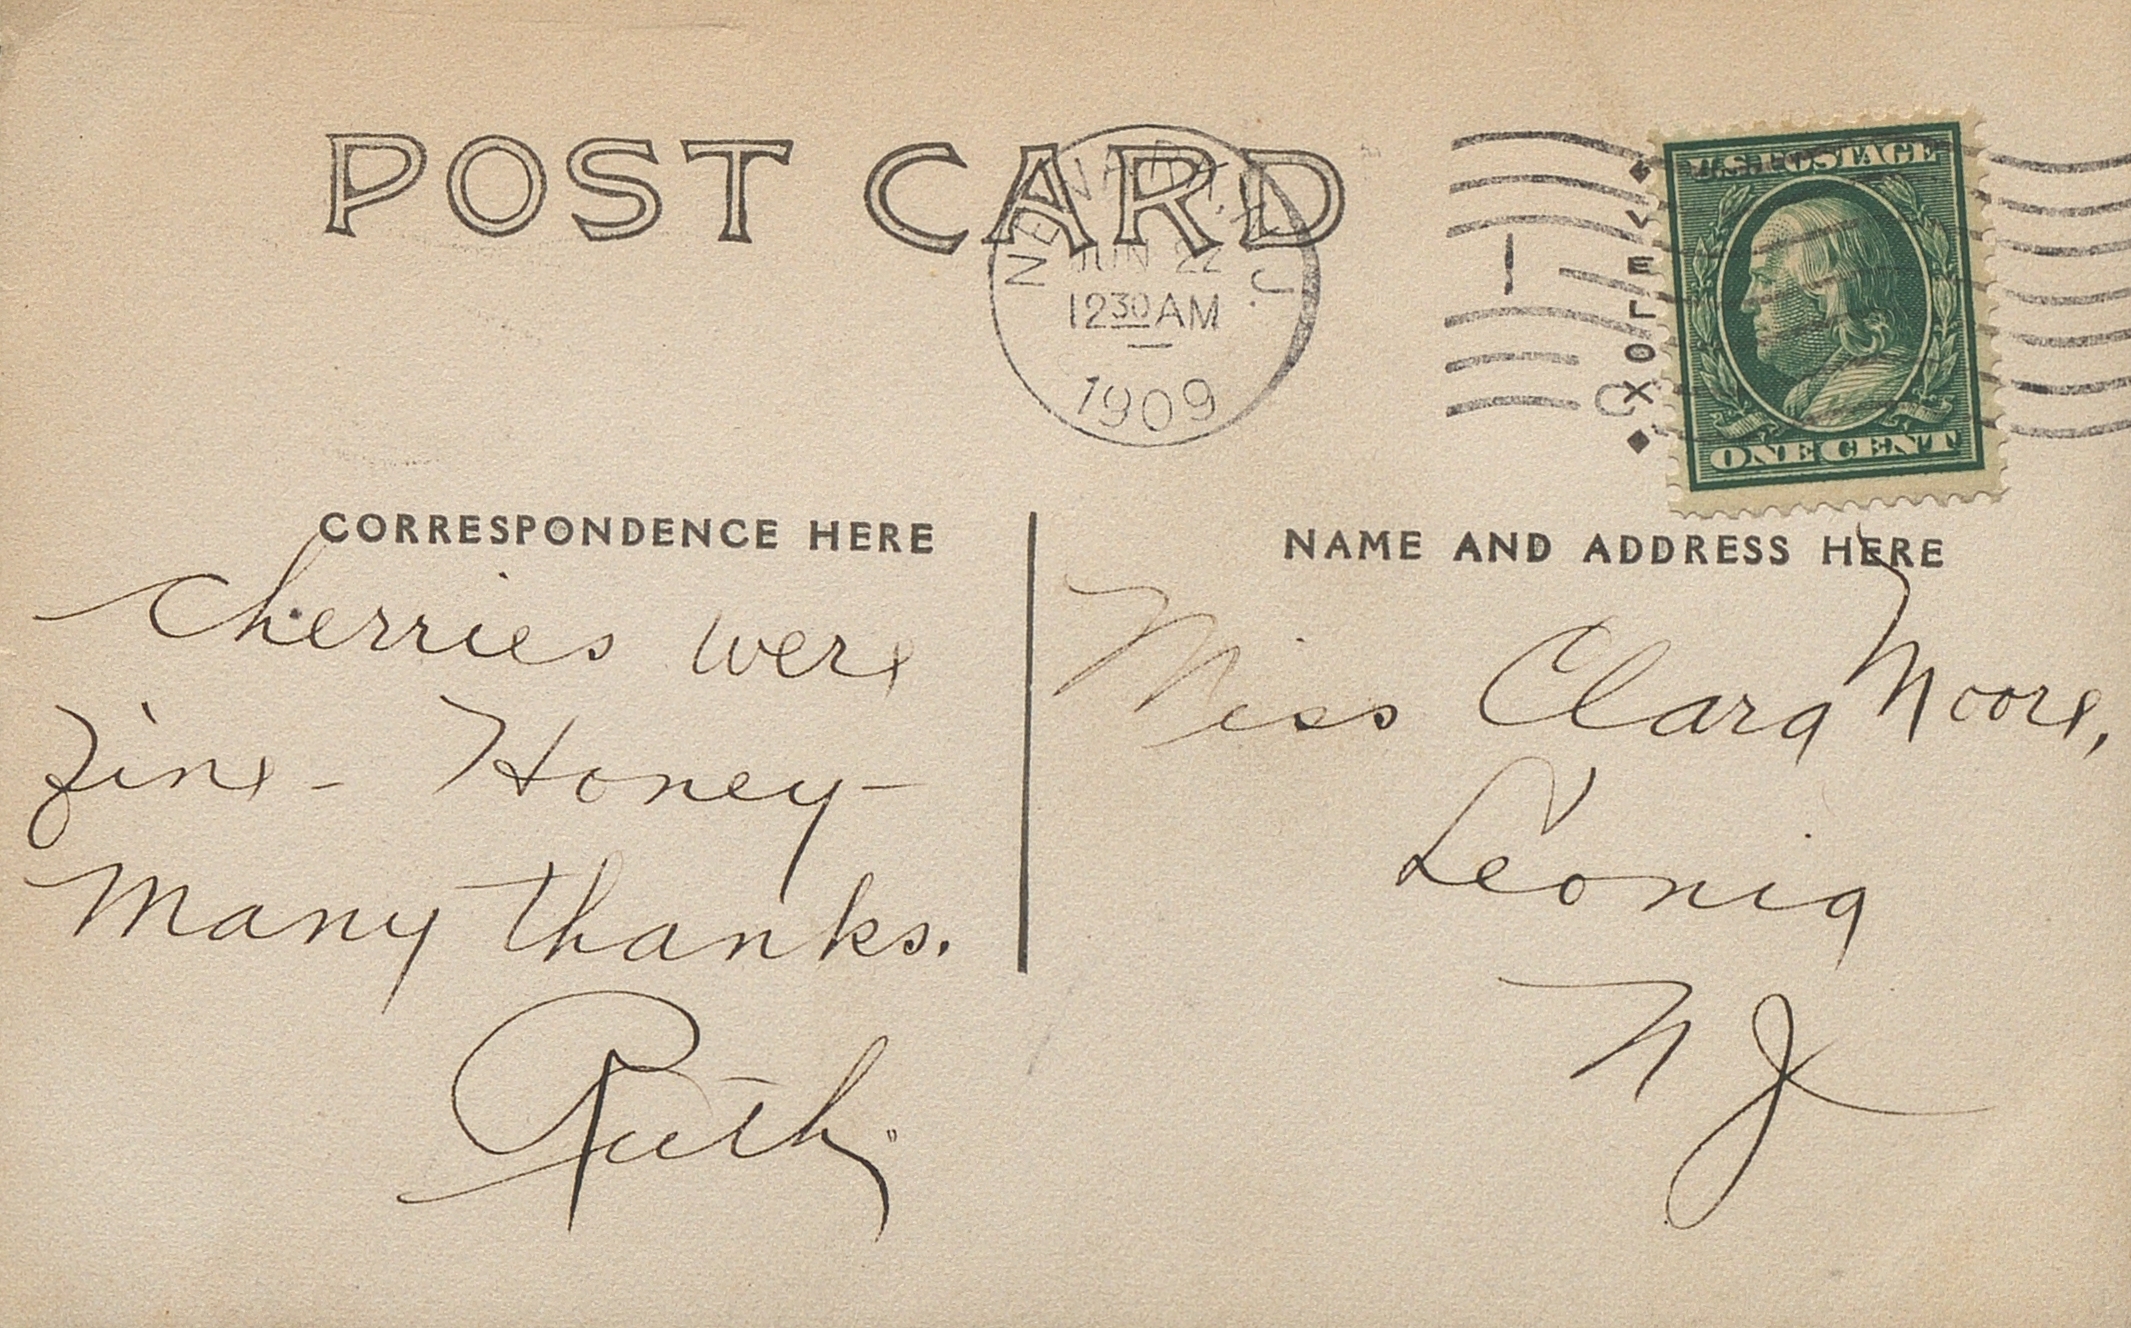 POST CARD
NEWARK, N.J.
JUN 22
12 30 AM
1909
1
VELOX
U.S. POSTAGE
ONE CENT
CORRESPONDENCE HERE
Cherries were
fine - Honey -
Many thanks.
Ruth.
NAME AND ADDRESS HERE
Miss Clara Moore,
Leonia
N J